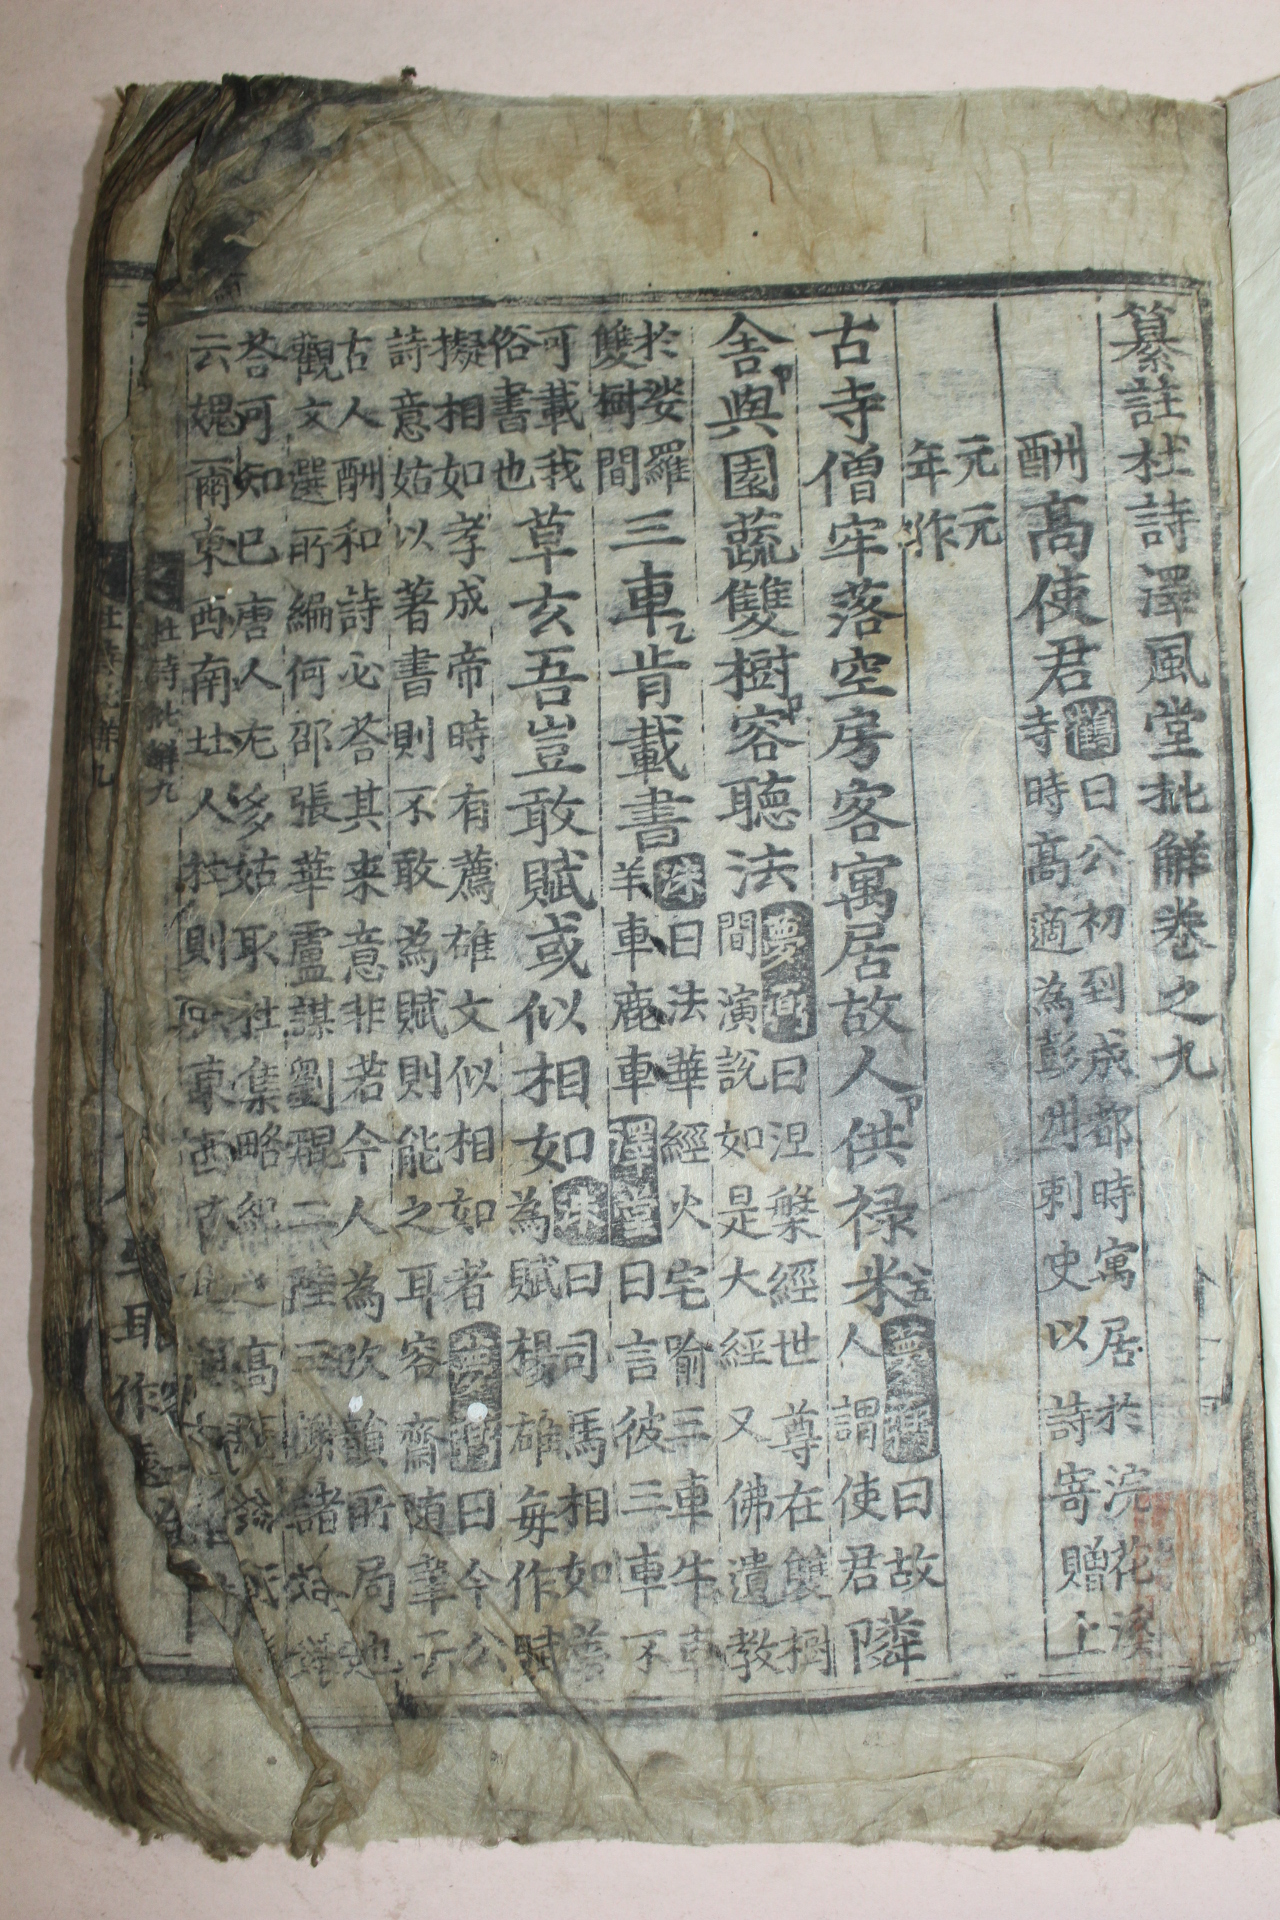 纂註杜詩澤風堂批解卷之九
酬高使君
鶴曰公初到成都時寓居於浣花溪
寺時高適為彭州刺史以詩寄贈上
元元
年作
古寺僧牢落空房客寓居故人供祿米
夢弼曰故
人謂使君
隣
舍與園蔬雙樹容聽法
夢弼曰涅槃經世尊在雙樹
間演說如是大經又佛遺教
於娑羅
雙樹間
三車肯載書
洙曰法華經火宅喻三車牛車
羊車鹿車澤堂曰言彼三車不
可載我
俗書也
草玄吾豈敢賦或似相如
洙曰司馬相如善
為賦楊雄每作賦
擬相如孝成帝時有薦雄文似相如者夢弼曰今公
詩意姑以著書則不敢為賦則能之耳容齋随筆云
古人酬和詩必荅其来意非若今人為次韻所局也
觀文選所編何邵張華盧諶劉琨二陸三謝諸
荅可知已唐人尤多姑取杜集略紀之高
云媿爾東西南北人杜則云東西
杜詩批解九